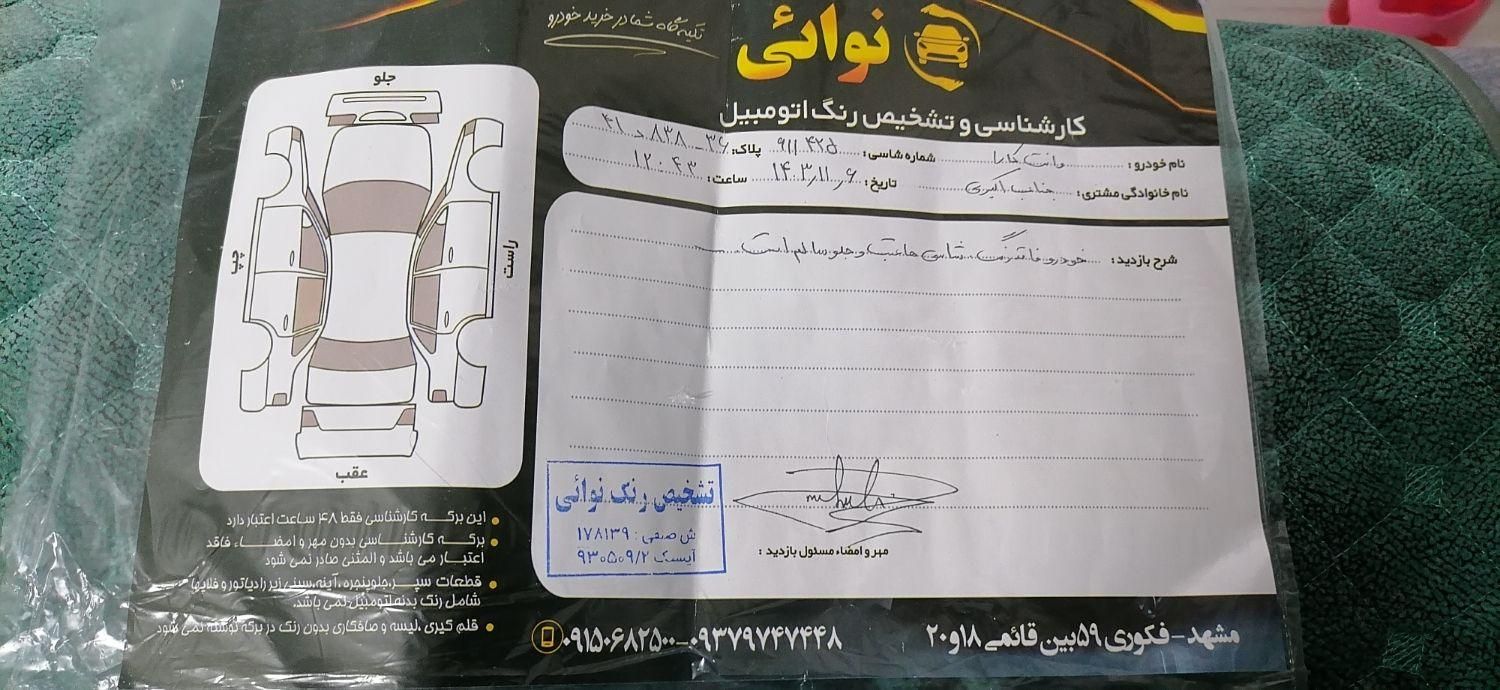 تکیه گاه شما در خرید خودرو
نوائی
کارشناسی و تشخیص رنگ اتومبیل
نام خودرو : وانت کارا شماره شاسی : ۹۱۱۴۲۵ پلاک: ۳۶ - ۸۳۸ د ۴۱
نام خانوادگی مشتری : جناب اکبری تاریخ : ۱۴۰۳/۱۱/۰۶ ساعت : ۱۲:۴۳
شرح بازدید : خودرو فاقد رنگ شاسی ها عقب و جلو سالم است
جلو
چپ
راست
عقب
این برگه کارشناسی فقط ۴۸ ساعت اعتبار دارد
برگه کارشناسی بدون مهر و امضاء فاقد
اعتبار می باشد و المثنی صادر نمی شود
قطعات سپر، جلوپنجره، آینه، سینی زیر رادیاتور و فلاپها
شامل رنگ بدنه اتومبیل نمی باشد.
قلم گیری، لیسه و صافکاری بدون رنگ در برگه نوشته نمی شود
تشخیص رنگ نوائی
ش صنفی : ۱۷۸۱۳۹
آیسک ۹۳۰۵۰۹/۲
مهر و امضاء مسئول بازدید :
مشهد - فکوری ۵۹ بین قائمی ۱۸ و ۲۰
۰۹۱۵۰۶۸۲۵۰۰-۰۹۳۷۹۷۴۷۴۴۸